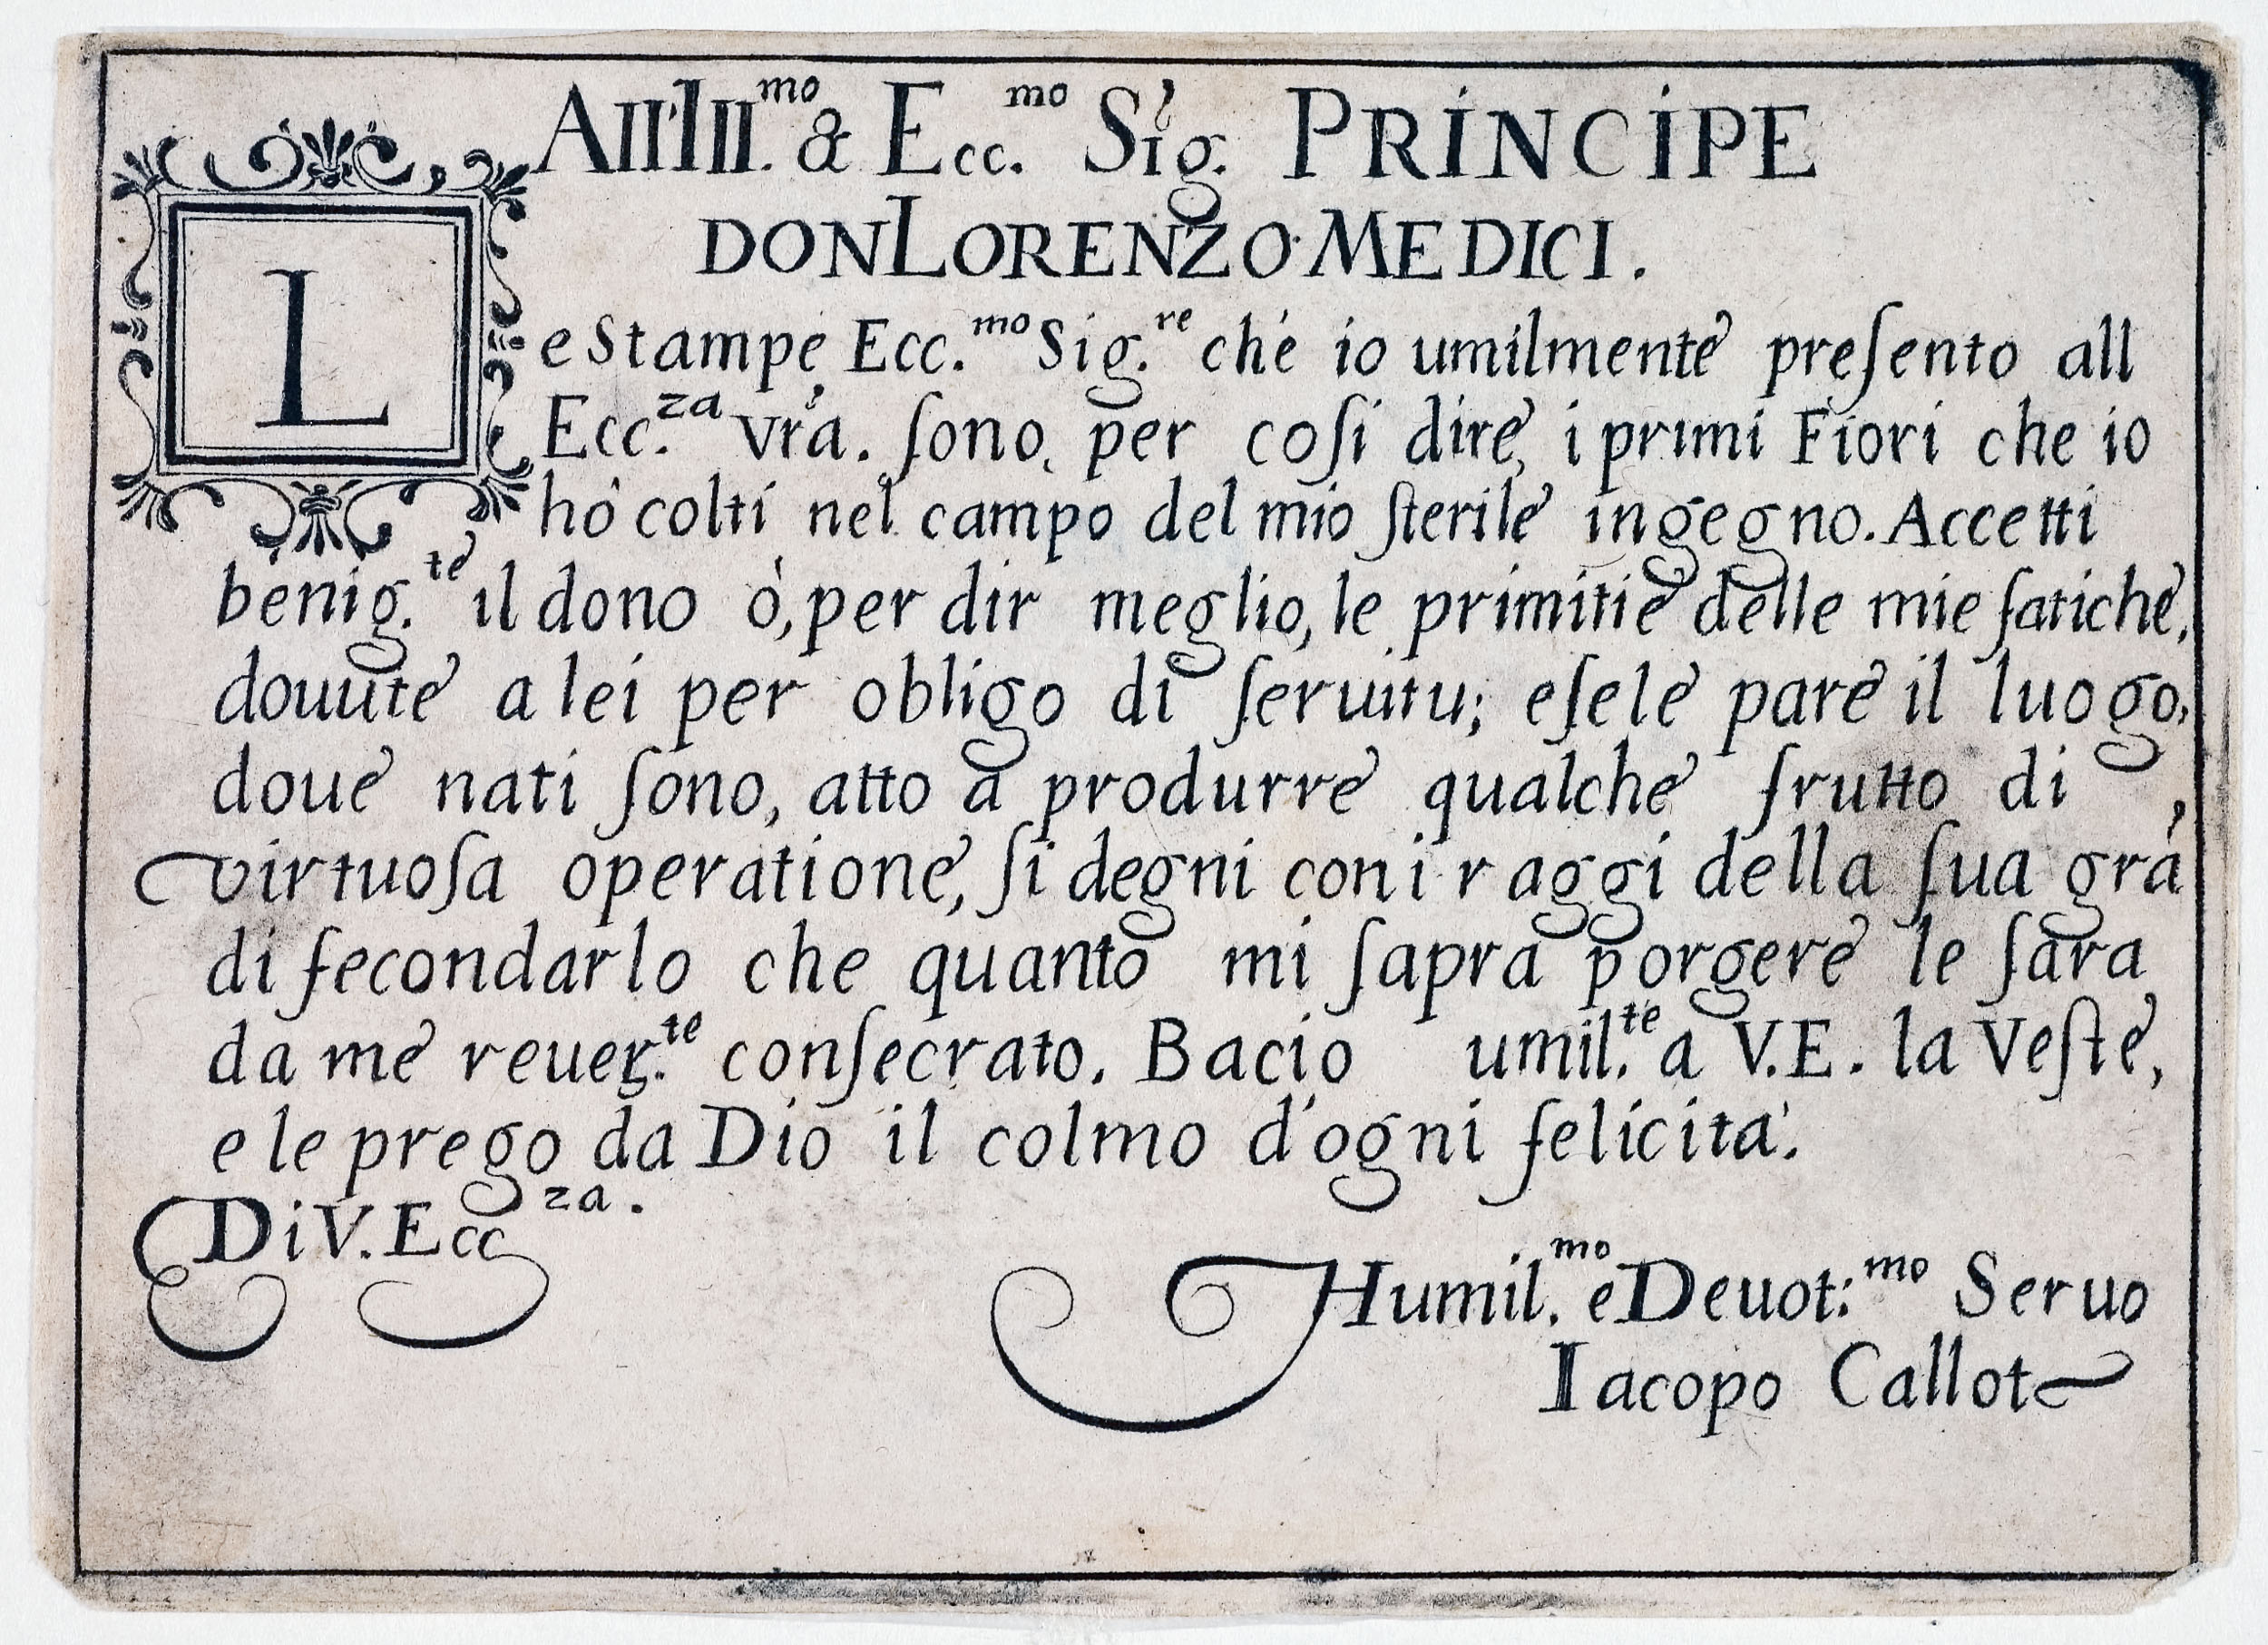 All'Ill.mo & Ecc.mo Sig. PRINCIPE
DON LORENZO MEDICI.
Le Stampe Ecc.mo Sig.re che io umilmente preſento all
Ecc.za vrã. ſono, per coſi dire, i primi Fiori che io
hò colti nel campo del mio ſterile ingegno. Accetti
benig.te il dono ò, per dir meglio, le primitie delle mie fatiche,
douute a lei per obligo di ſeruitu; e ſe le pare il luogo,
doue nati ſono, atto a produrre qualche frutto di
virtuoſa operatione, ſi degni con i raggi della ſua grã
di fecondarlo che quanto mi ſapra porgere le ſara
da me reuer.te conſecrato. Bacio umil.te a V.E. la Veſte,
e le prego da Dio il colmo d'ogni felicita'.
Di V. Ecc za.
Humil.mo e Deuot:mo Seruo
Iacopo Callot